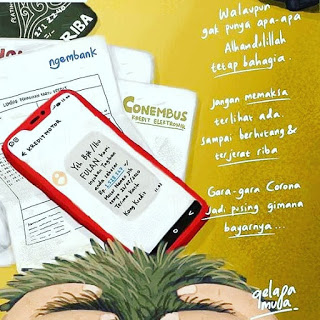 RIBA
ngembank
CONEMBUS
KREDIT ELEKTRONIK
KREDIT MOTOR
Yth Bpk/Ibu
FULAN kami
Terima kasih
Kang Kredit
Walaupun
gak punya apa-apa
Alhamdulillah
tetap bahagia.
Jangan memaksa
terlihat ada
sampai berhutang &
terjerat riba
Gara-gara Corona
jadi pusing gimana
bayarnya...
gelapa
muda